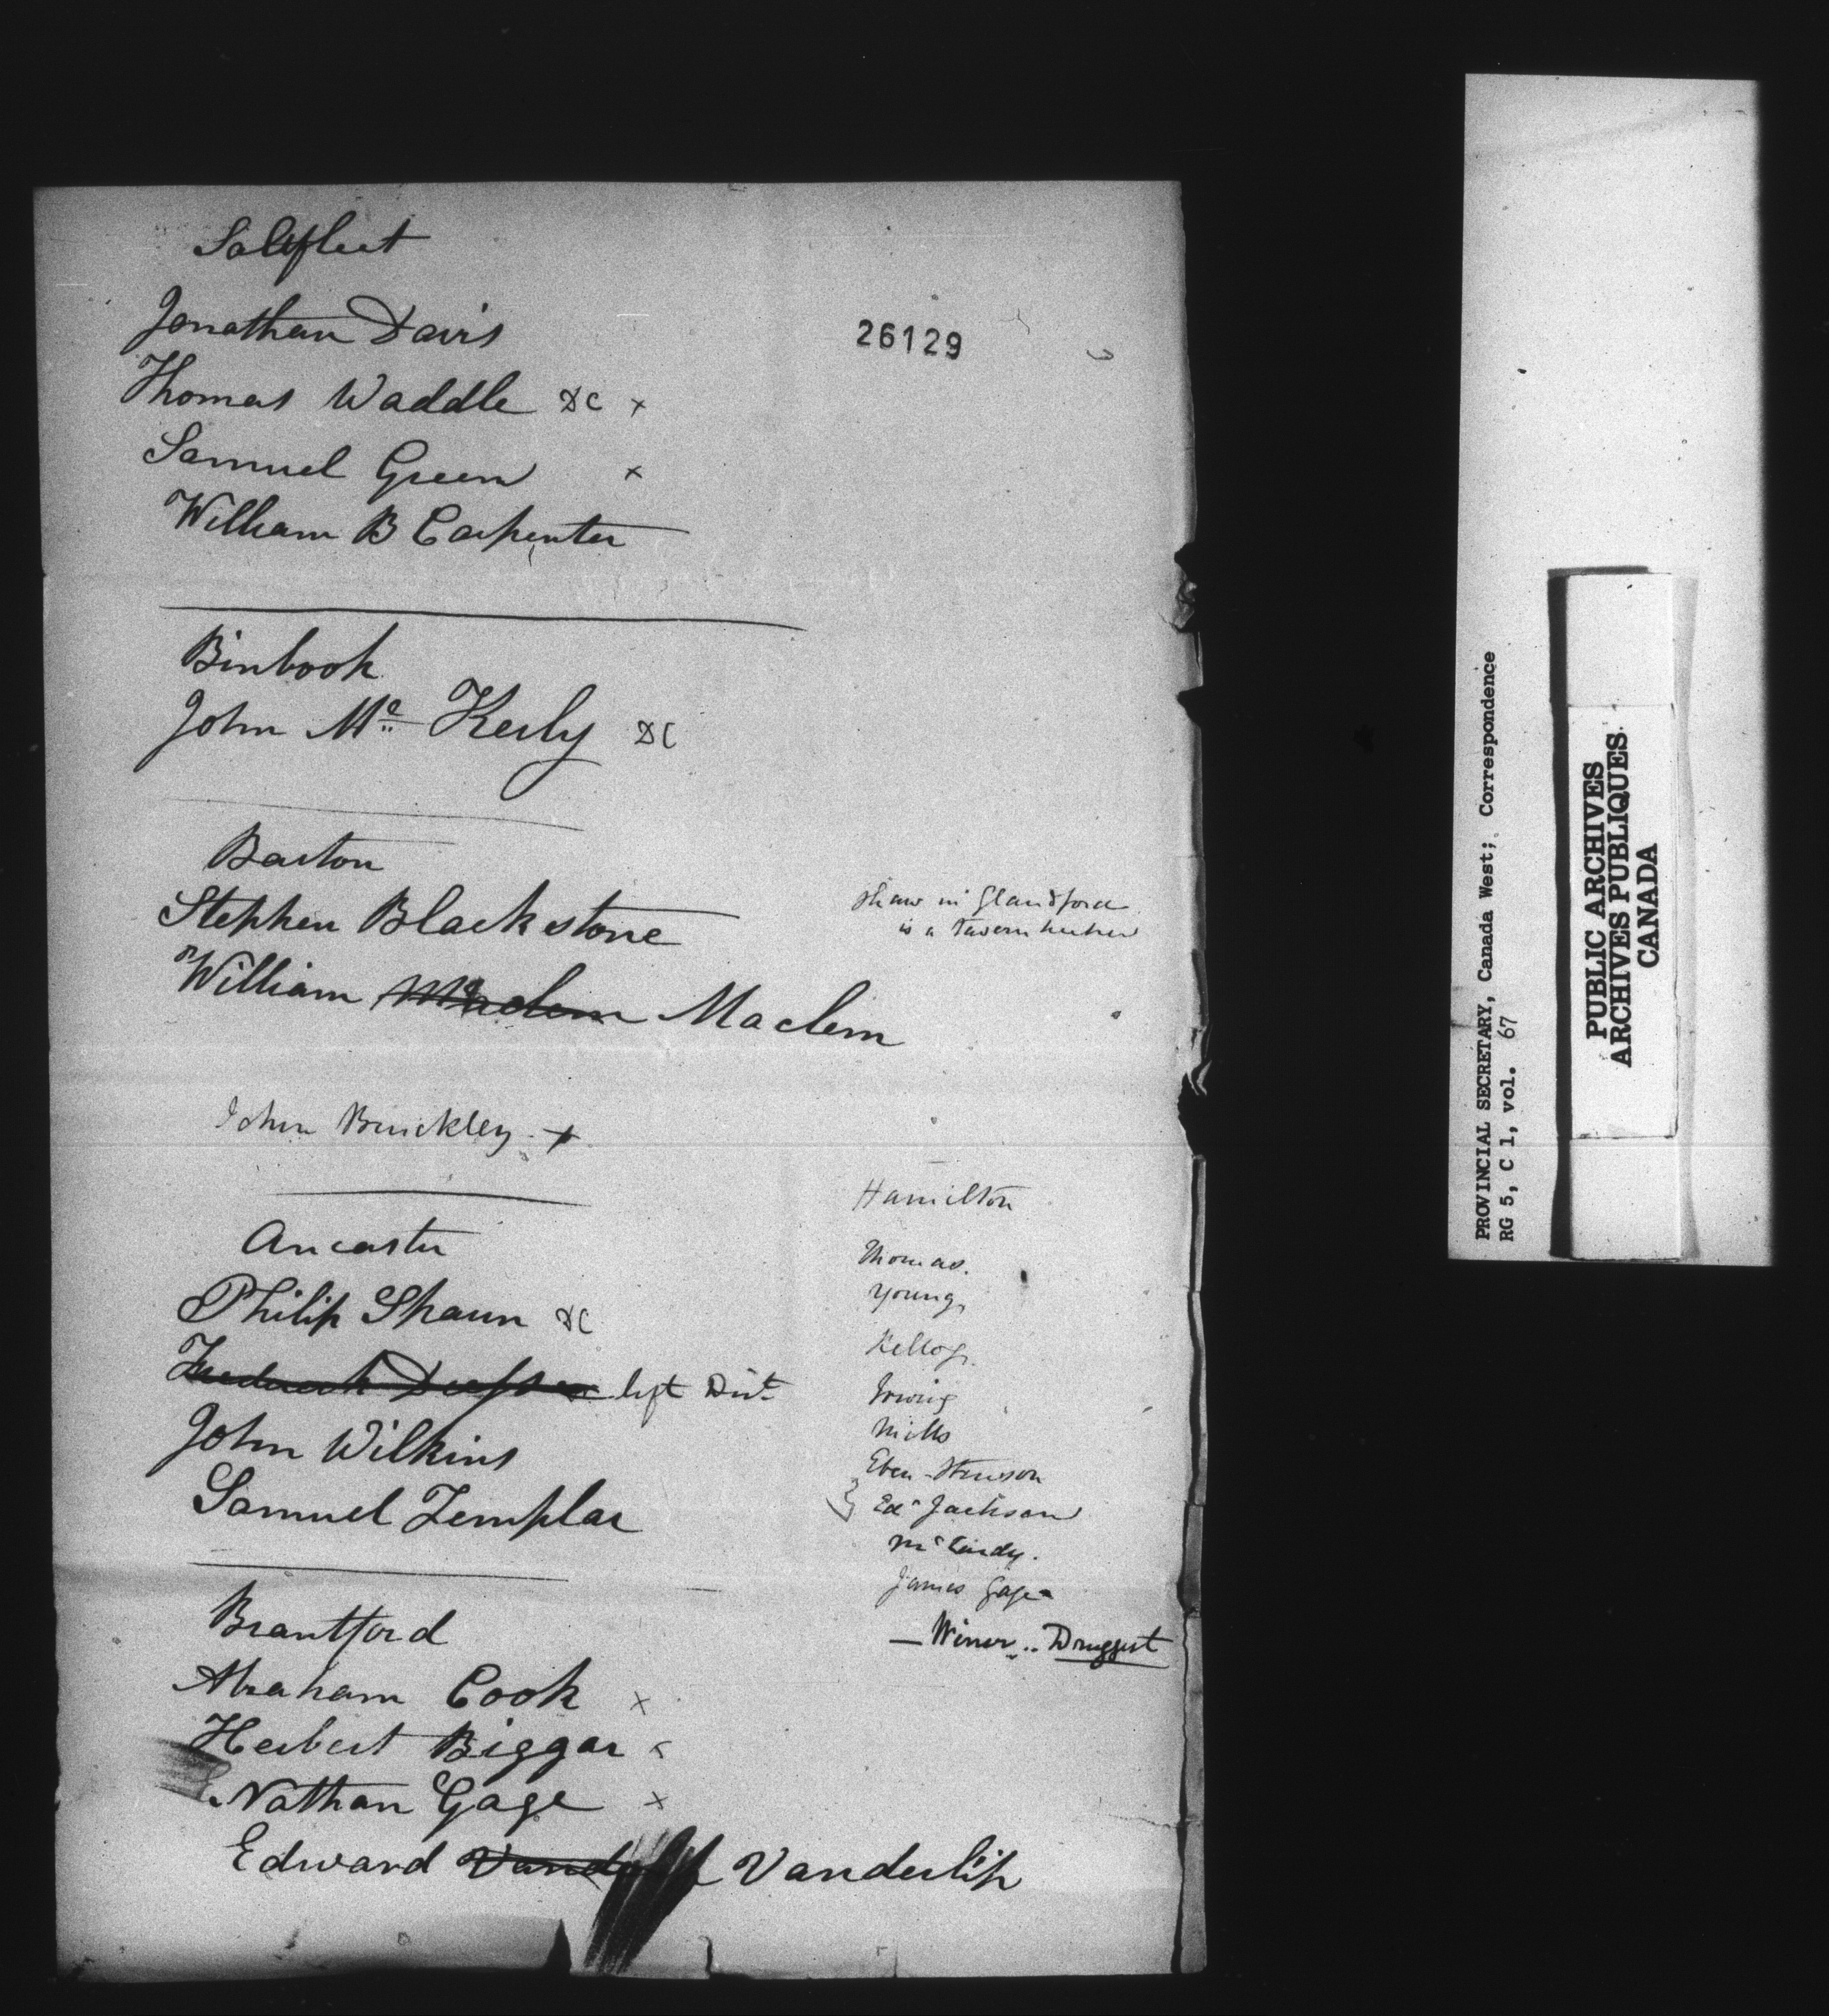 Saltfleet
Jonathan Davis
26129
Thomas Waddle DC x
Samuel Green x
William B Carpenter
Binbook
John Mc Kerly DC
Barton
Stephen Blackstone
William Maclem
Shaw in Glandford
is a Tavern keeper
John Binckley - x
Ancaster
Philip Shaun DC
left Dist
John Wilkins
Samuel Templar
Hamilton
Thomas.
Young
Kellogg.
Irwing
Mills
Eben. Stinson
Ed Jackson
James Gage
— Winer .. Druggist
Brantford
Abraham Cook x
Herbert Biggar x
Nathan Gage x
Edward Vanderlip
PROVINCIAL SECRETARY, Canada West; Correspondence
RG 5, C 1, vol. 67
PUBLIC ARCHIVES
ARCHIVES PUBLIQUES
CANADA